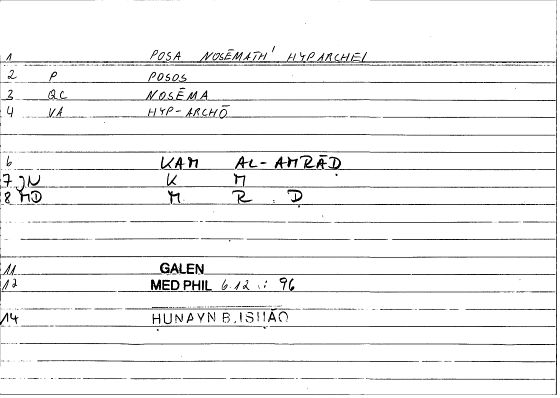 1 POSA NOSĒMATH' HYPARCHEI
2 P POSOS
3 QC NOSĒMA
4 VA HYP-ARCHŌ
6 KAM AL-AMRĀḌ
7 JN K M
8 MD M R Ḍ
11 GALEN
12 MED PHIL 6.12 : 96
14 ḤUNAYN B. ISḤĀQ